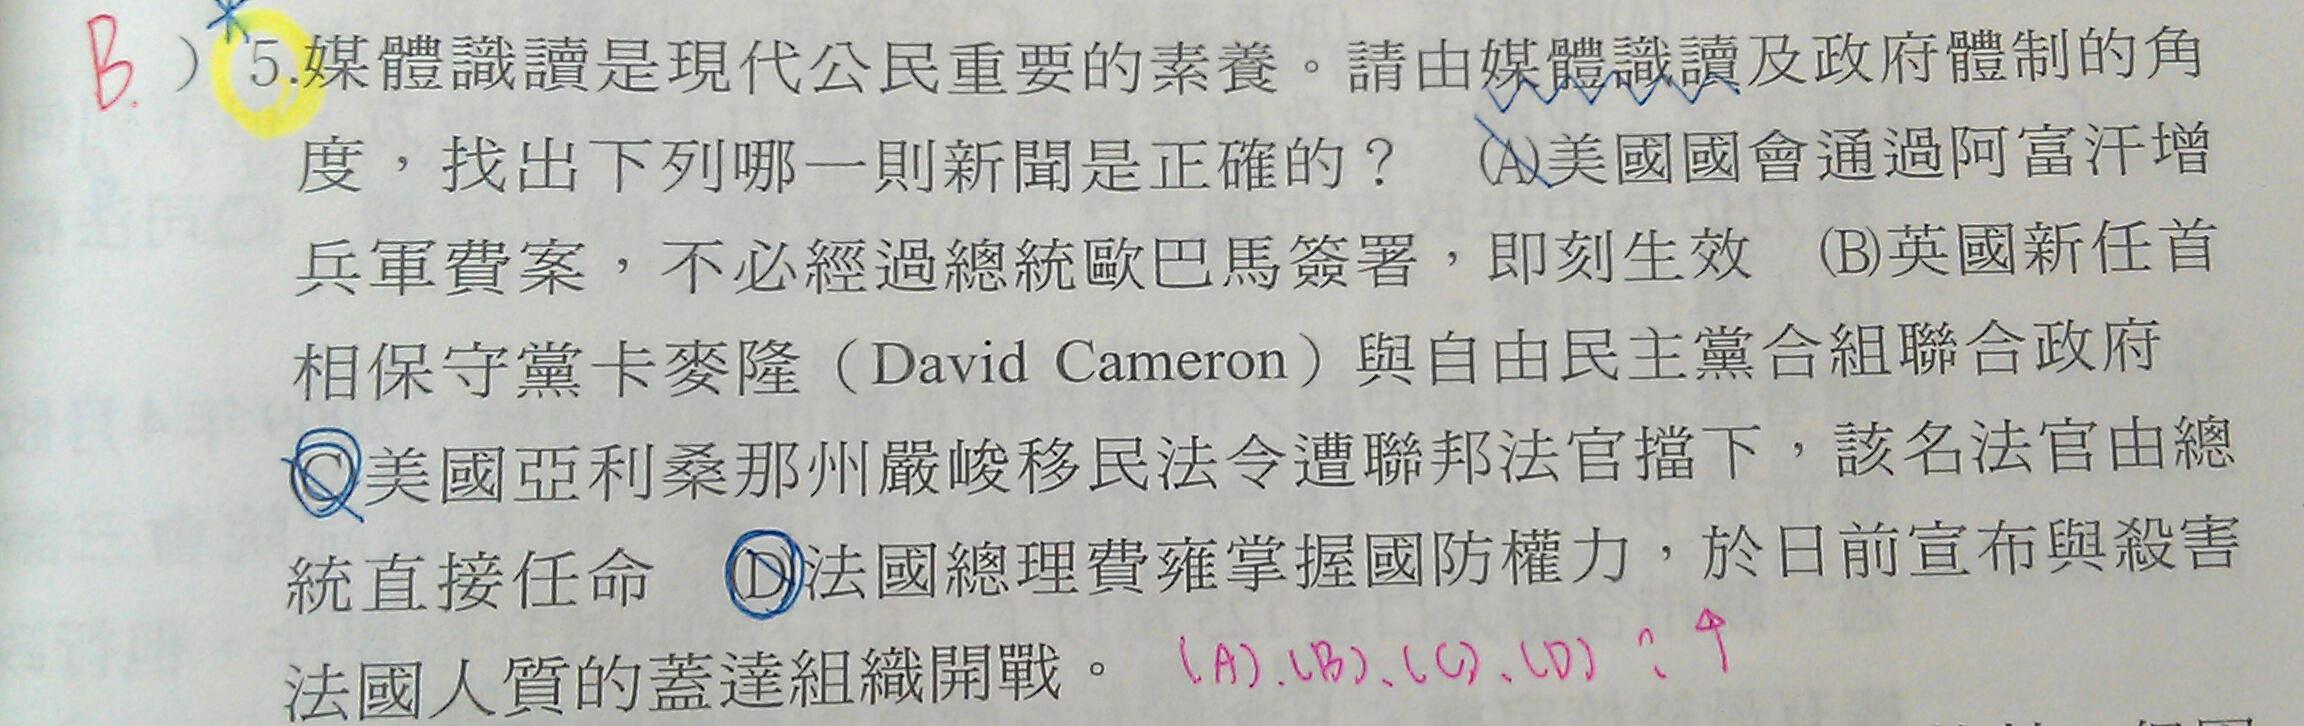 B. ) 5.媒體識讀是現代公民重要的素養。請由媒體識讀及政府體制的角
度，找出下列哪一則新聞是正確的？ (A)美國國會通過阿富汗增
兵軍費案，不必經過總統歐巴馬簽署，即刻生效 (B)英國新任首
相保守黨卡麥隆（David Cameron）與自由民主黨合組聯合政府
(C)美國亞利桑那州嚴峻移民法令遭聯邦法官擋下，該名法官由總
統直接任命 (D)法國總理費雍掌握國防權力，於日前宣布與殺害
法國人質的蓋達組織開戰。 (A)、(B)、(C)、(D)？↑